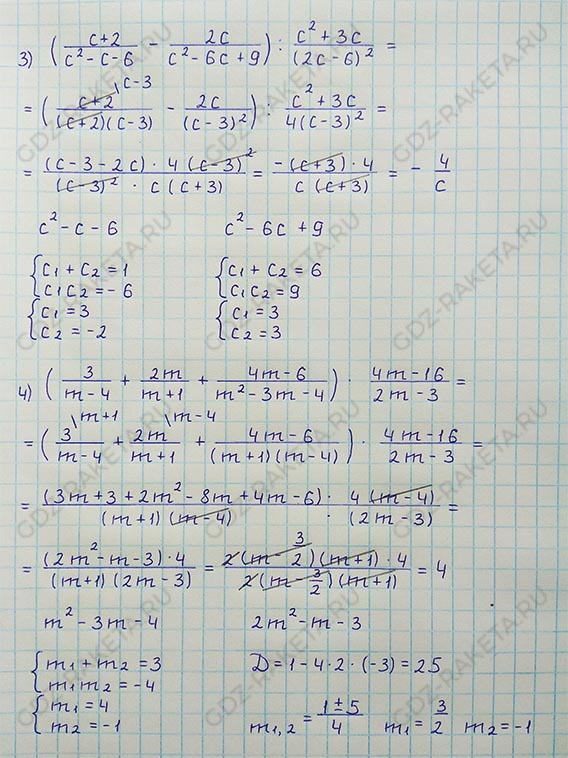 3) ( (c+2)/(c² - c - 6) - 2c/(c² - 6c + 9) ) : (c² + 3c)/(2c - 6)² =
= ( (c+2)\c-3/((c+2)(c-3)) - 2c/(c-3)² ) : (c² + 3c)/(4(c-3)²) =
= ((c - 3 - 2c) · 4(c-3)²)/((c-3)² · c(c+3)) = (-(c+3) · 4)/(c(c+3)) = - 4/c
c² - c - 6    c² - 6c + 9
{ c₁ + c₂ = 1    { c₁ + c₂ = 6
c₁c₂ = -6    c₁c₂ = 9
{ c₁ = 3    { c₁ = 3
c₂ = -2    c₂ = 3
4) ( 3/(m-4) + 2m/(m+1) + (4m-6)/(m² - 3m - 4) ) · (4m-16)/(2m-3) =
= ( 3\m+1/(m-4) + 2m\m-4/(m+1) + (4m-6)/((m+1)(m-4)) ) · (4m-16)/(2m-3) =
= ((3m + 3 + 2m² - 8m + 4m - 6) · 4(m-4))/((m+1)(m-4) · (2m-3)) =
= ((2m² - m - 3) · 4)/((m+1)(2m-3)) = (2(m - 3/2)(m+1) · 4)/(2(m - 3/2)(m+1)) = 4
m² - 3m - 4    2m² - m - 3
{ m₁ + m₂ = 3    D = 1 - 4 · 2 · (-3) = 25
m₁m₂ = -4
{ m₁ = 4    m₁,₂ = (1 ± 5)/4    m₁ = 3/2    m₂ = -1
m₂ = -1
GDZ-RAKETA.RU